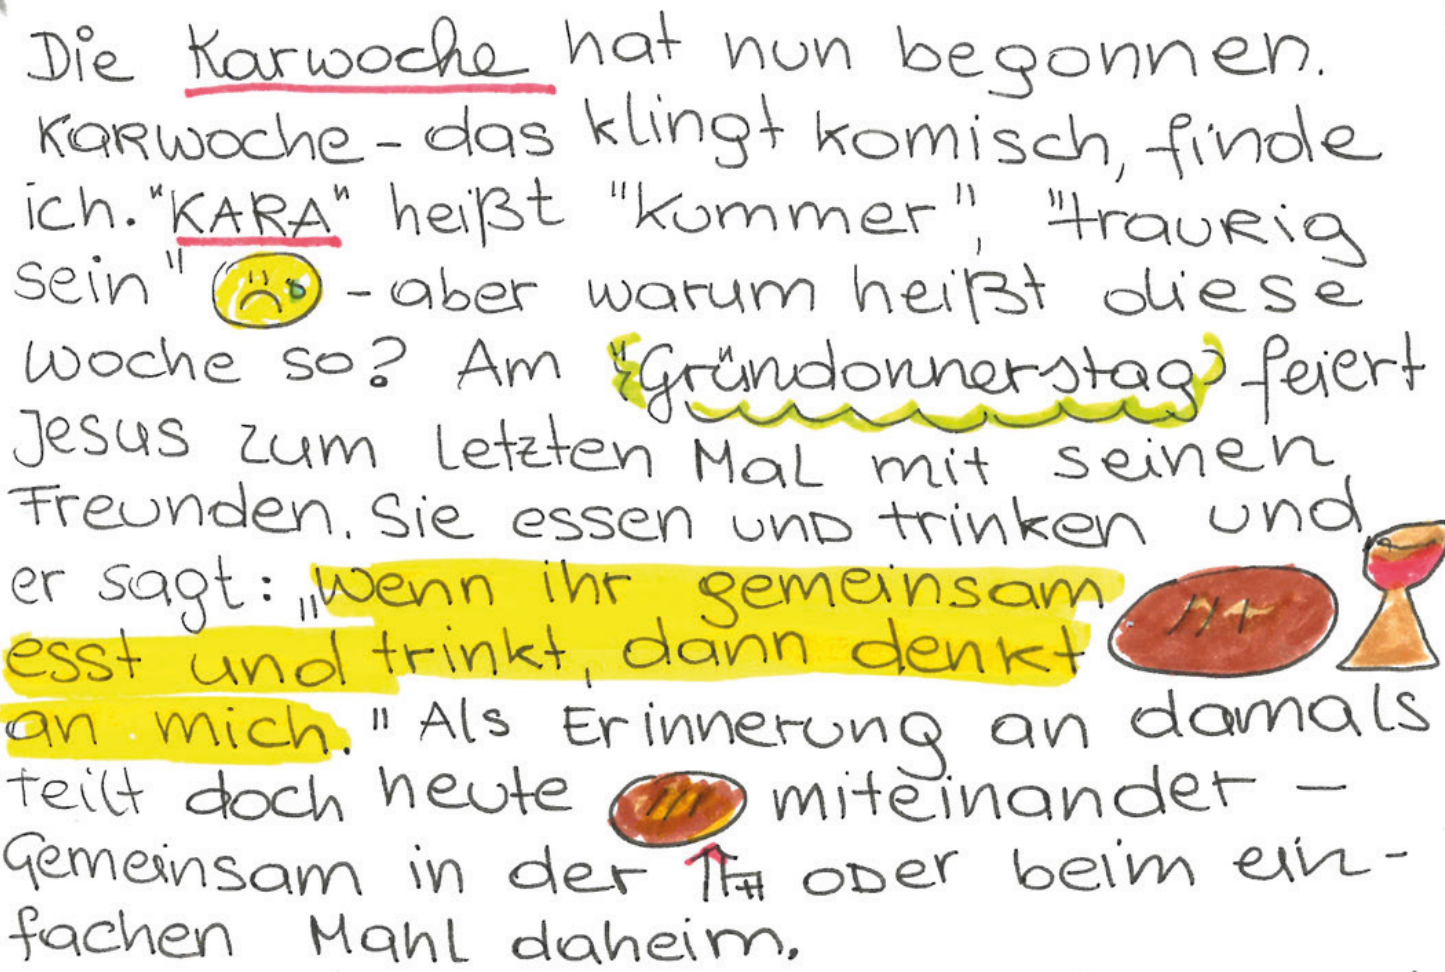 Die Karwoche hat nun begonnen.
KARwoche - das klingt komisch, finde
ich. "KARA" heißt "Kummer", "traurig
sein" - aber warum heißt diese
Woche so? Am "Gründonnerstag" feiert
Jesus zum letzten Mal mit seinen
Freunden. Sie essen und trinken und
er sagt: „Wenn ihr gemeinsam
esst und trinkt, dann denkt
an mich." Als Erinnerung an damals
teilt doch heute miteinander -
Gemeinsam in der oder beim ein-
fachen Mahl daheim.